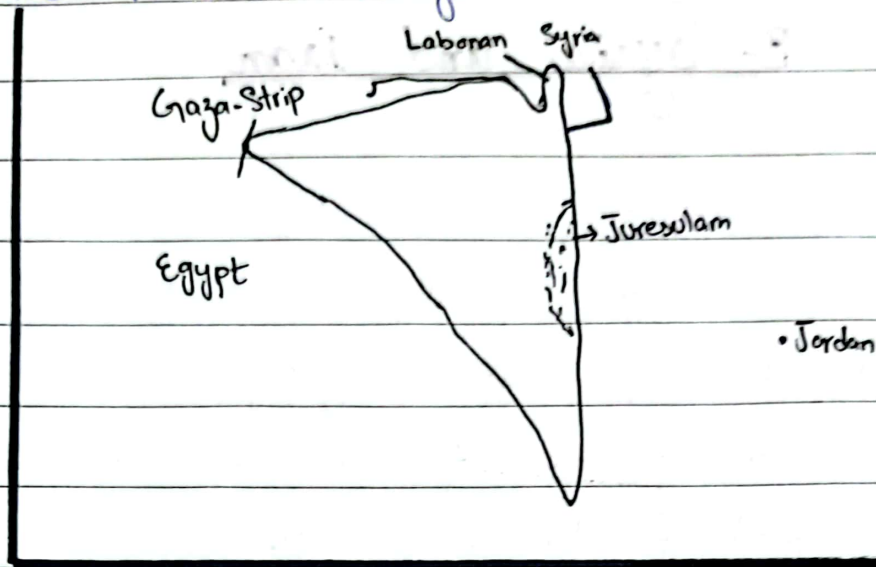 Labonan Syria
Gaza-Strip
Juresulam
Egypt
Jordan